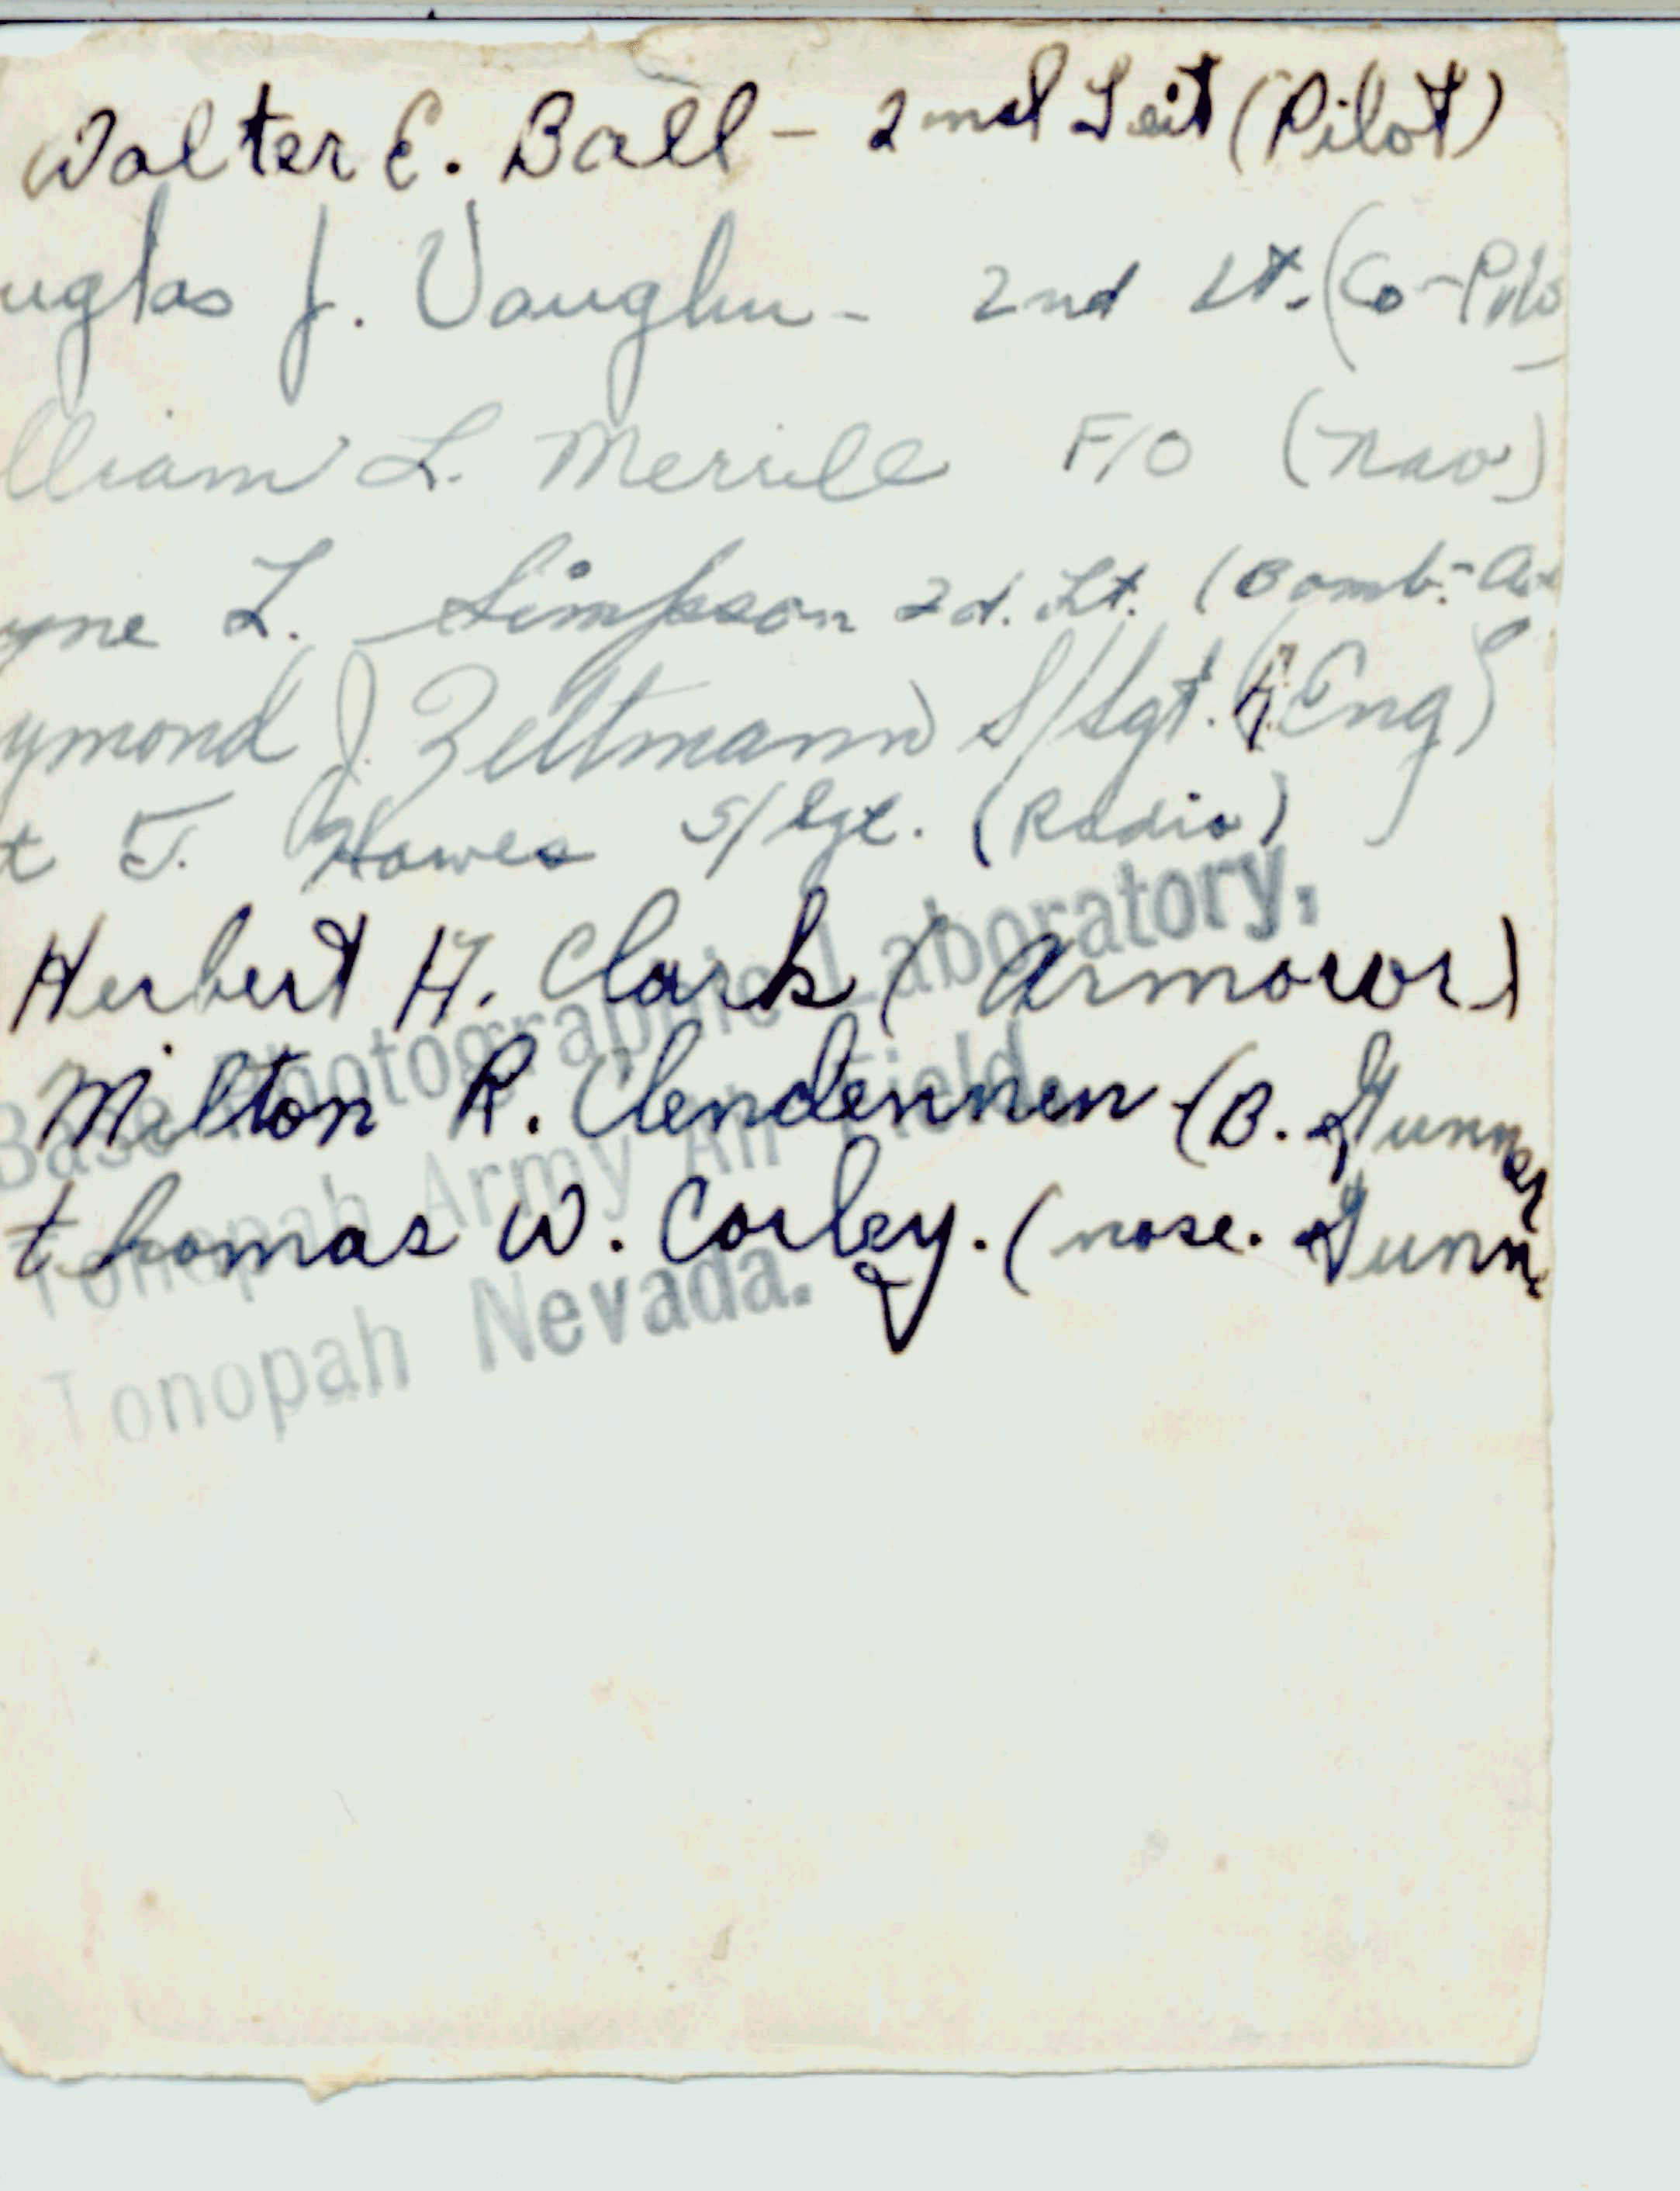 Walter E. Ball - 2nd Leit (Pilot)
uglas J. Vaughn - 2nd Lt. (Co-Pilo
lliam L. Merrill F/O (Nav)
yne L. Simpson 2d. Lt. (Bomb.-
ymond J. Zeltmann S/Sgt. (Eng)
t J. Howes S/Sgt. (Radio)
Herbert H. Clark (Armoror)
Milton R. Clendennen (B. Gunner
thomas W. Corley. (nose. Gunne
Base Photographic Laboratory,
Tonopah Army Air Field,
Tonopah Nevada.